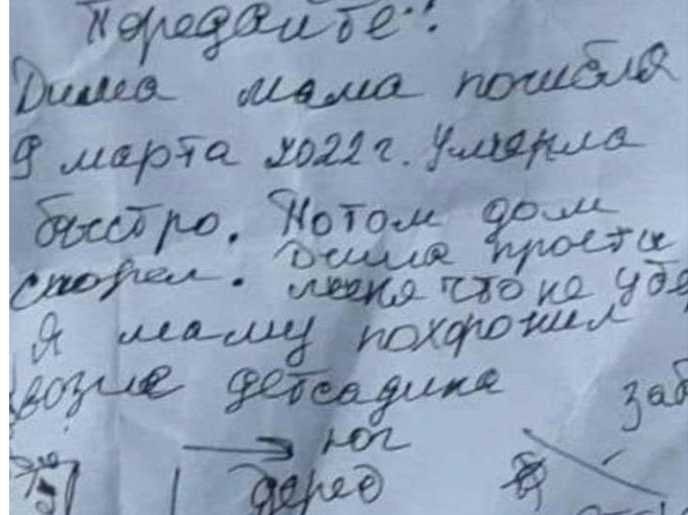 Передайте!
Дима мама погибла
9 марта 2022г. Умерла
быстро. Потом дом
сгорел. Дима прости
меня что не убе
Я маму похоронил
возле детсадика
заб
юг
дерев